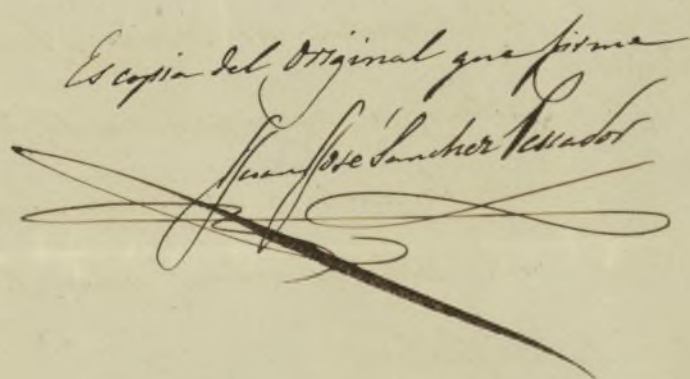 Es copia del Original que firma
Juan José Sanchez Pescador